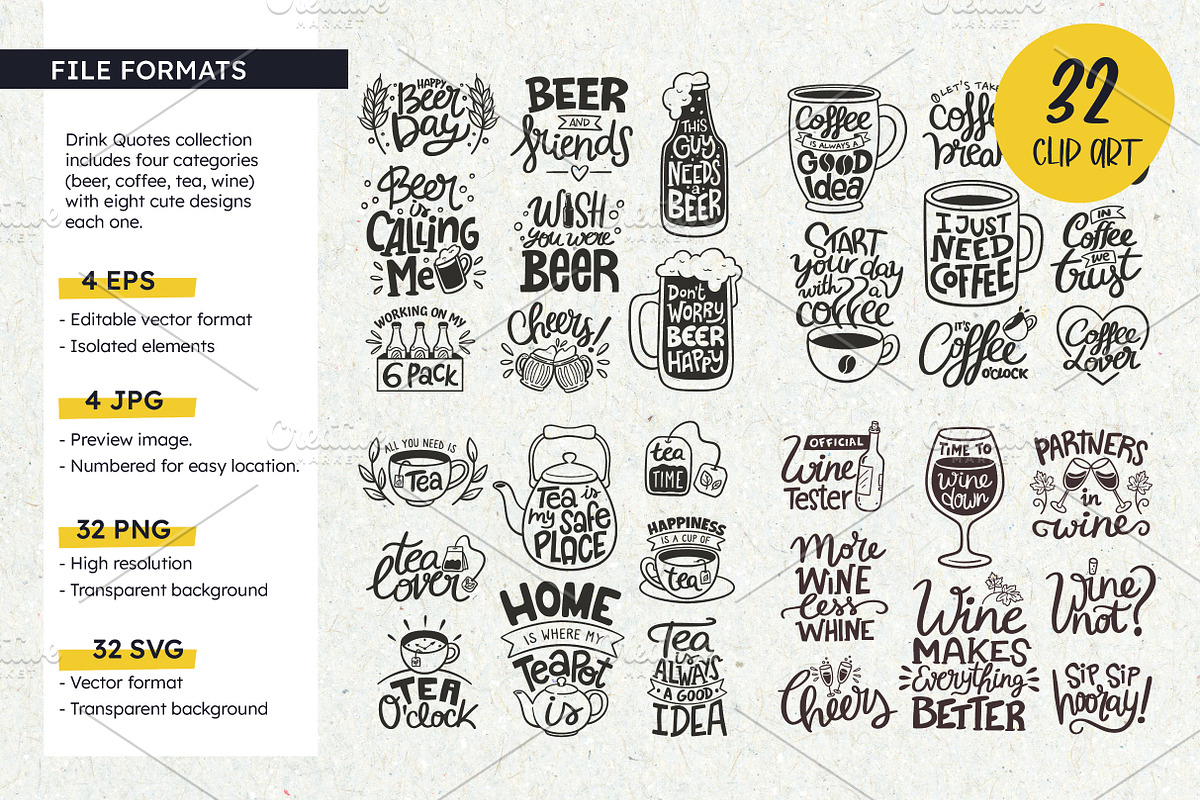 FILE FORMATS
Drink Quotes collection
includes four categories
(beer, coffee, tea, wine)
with eight cute designs
each one.
4 EPS
- Editable vector format
- Isolated elements
4 JPG
- Preview image.
- Numbered for easy location.
32 PNG
- High resolution
- Transparent background
32 SVG
- Vector format
- Transparent background
HAPPY
Beer
Day
BEER
AND
friends
THIS
GUY
NEEDS
a
BEER
Beer
is
CALLING
Me
WISH
you were
BEER
WORKING ON MY
6 Pack
Cheers!
Don't
WORRY
BEER
HAPPY
Coffee
IS ALWAYS A
GOOD
Idea
LET'S TAKE
32
CLIP ART
START
your day
with a
coffee
I JUST
NEED
COFFEE
IN
Coffee
we
trust
IT'S
Coffee
O'CLOCK
Coffee
Lover
ALL YOU NEED IS
Tea
Tea is
my safe
PLACE
tea
TIME
tea
lover
HAPPINESS
IS A CUP OF
tea
TEA
O'clock
HOME
IS WHERE MY
TeaPot
is
Tea
is
ALWAYS
A GOOD
IDEA
OFFICIAL
Wine
Tester
TIME TO
wine
down
PARTNERS
in
wine
More
WINE
less
WHINE
Wine
MAKES
Everything
BETTER
Wine
not?
Cheers
SIP SIP
hooray!
Creative
MARKET